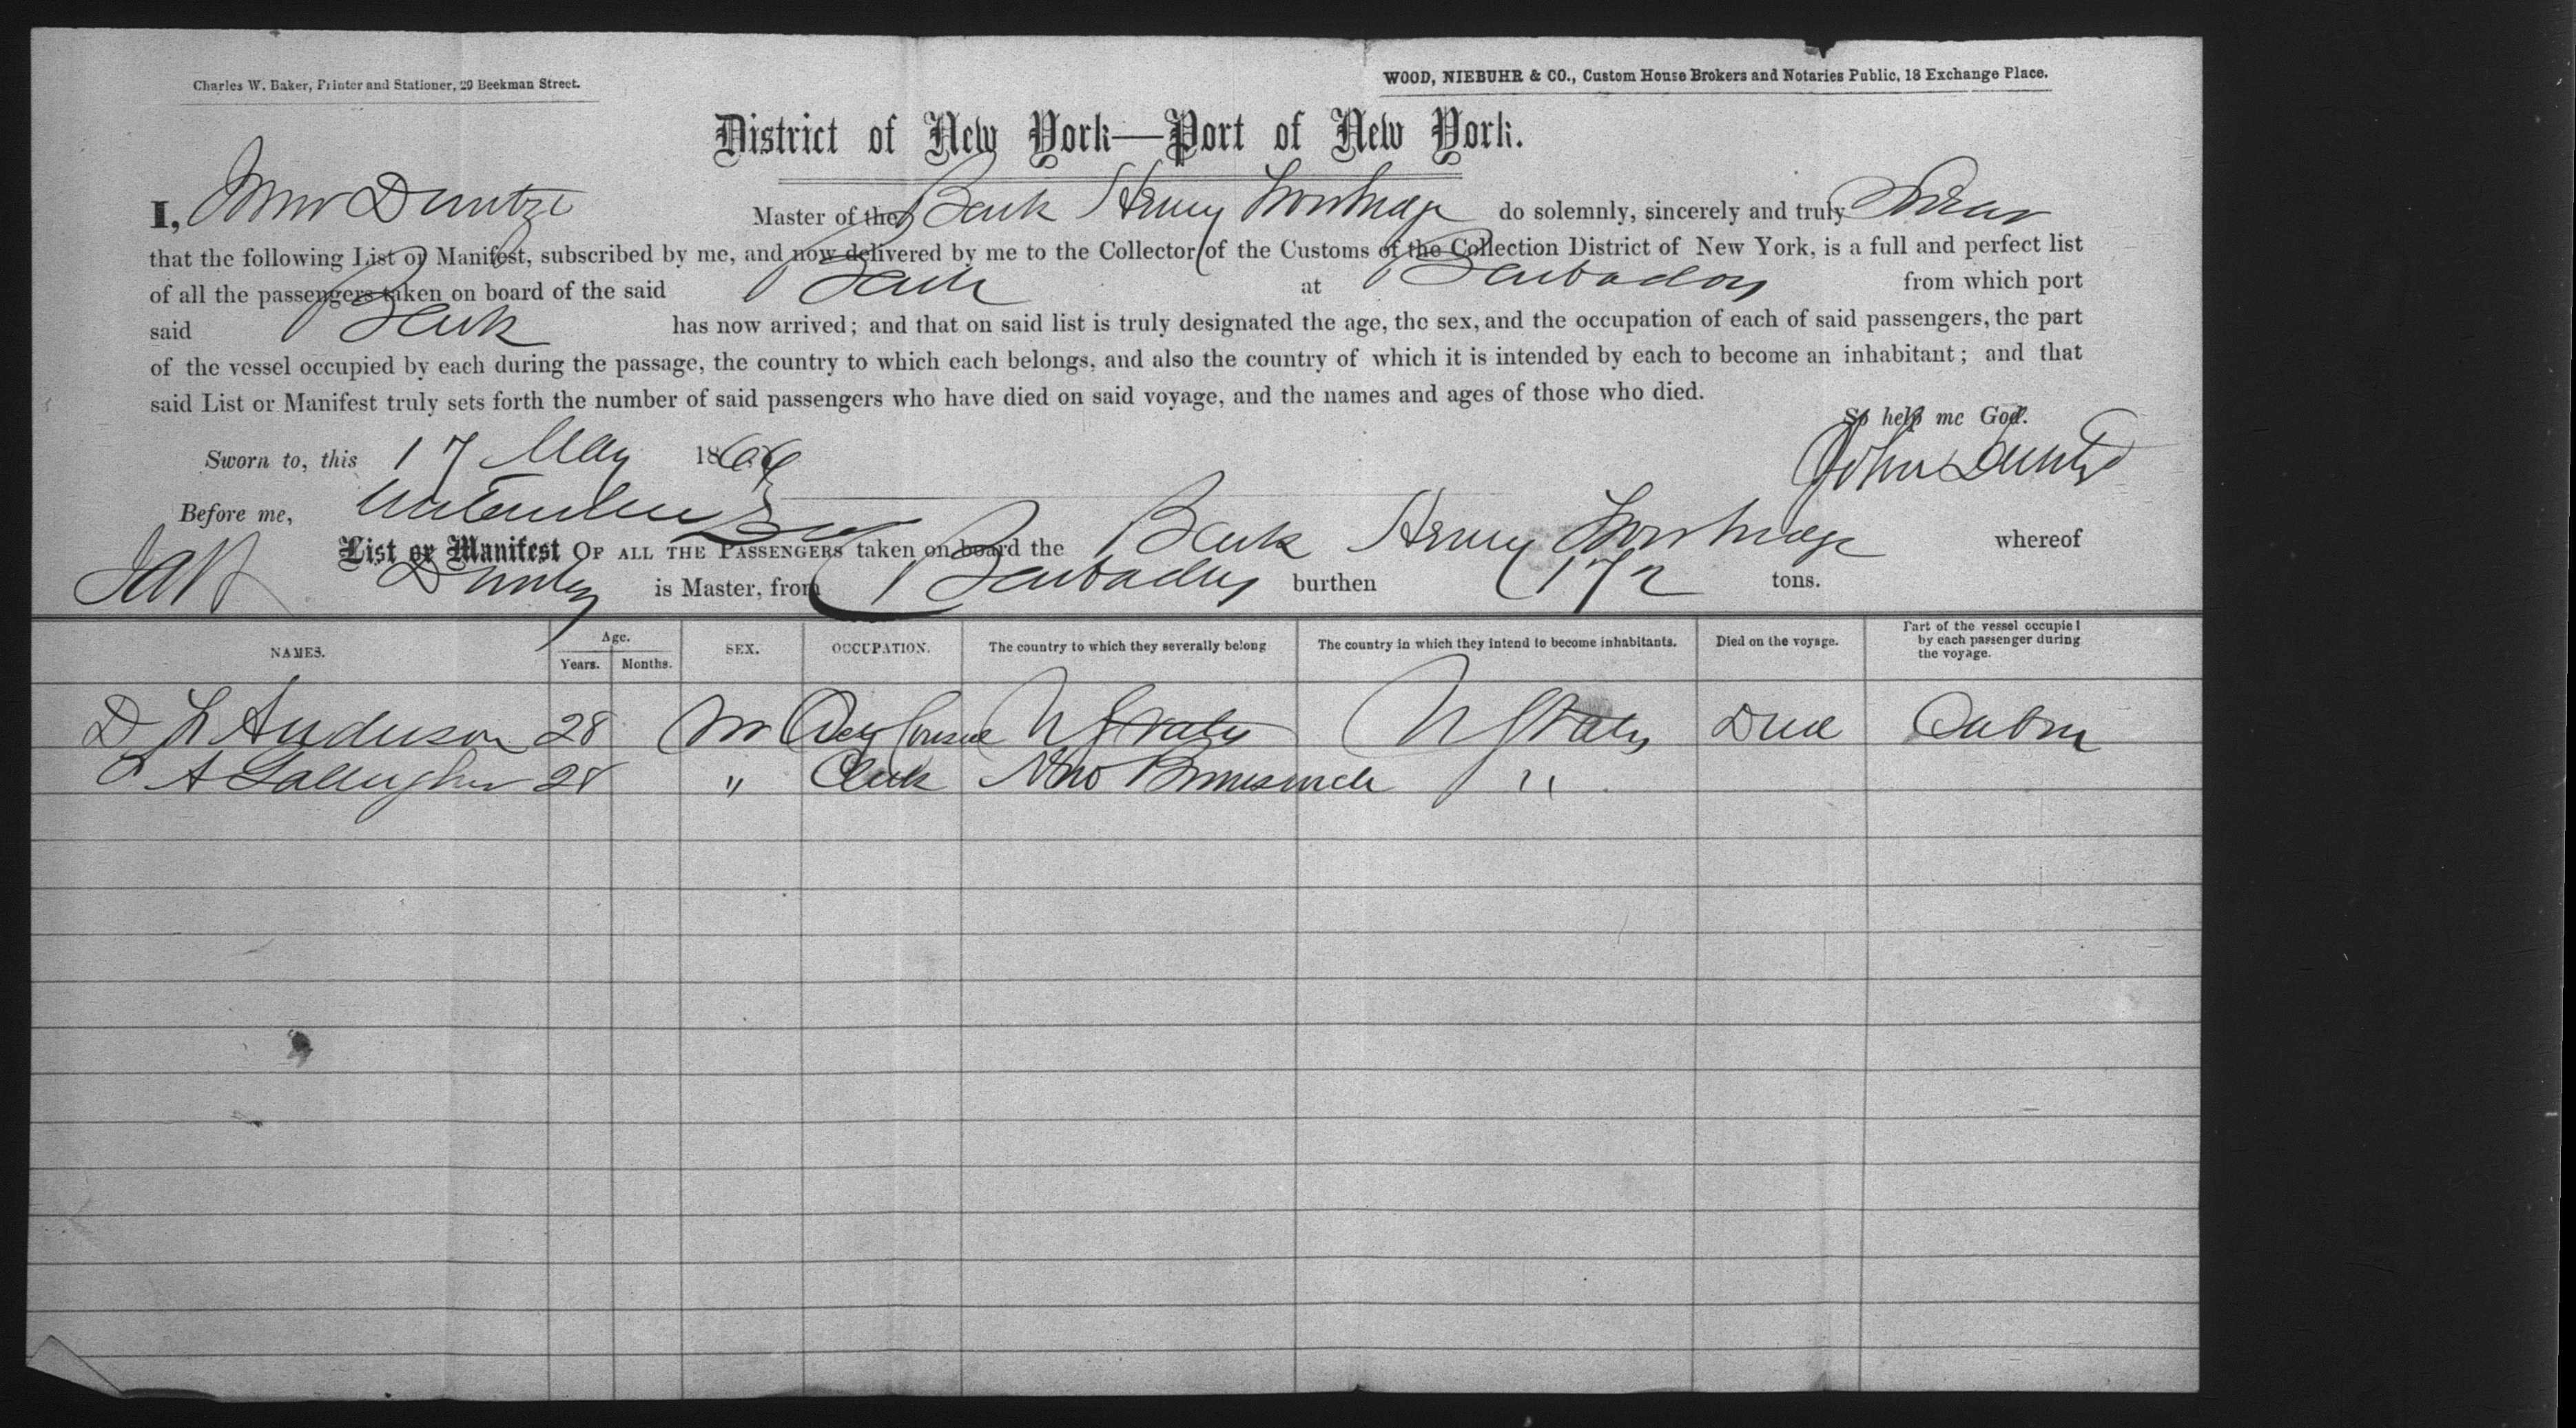 Charles W. Baker, Printer and Stationer, 29 Beekman Street.
WOOD, NIEBUHR & CO., Custom House Brokers and Notaries Public, 18 Exchange Place.
District of New York—Port of New York.
I, John Duntze Master of the Bark Henry Trowbridge do solemnly, sincerely and truly Swear
that the following List or Manifest, subscribed by me, and now delivered by me to the Collector of the Customs of the Collection District of New York, is a full and perfect list
of all the passengers taken on board of the said Bark at Barbados from which port
said Bark has now arrived; and that on said list is truly designated the age, the sex, and the occupation of each of said passengers, the part
of the vessel occupied by each during the passage, the country to which each belongs, and also the country of which it is intended by each to become an inhabitant; and that
said List or Manifest truly sets forth the number of said passengers who have died on said voyage, and the names and ages of those who died.
So help me God.
Sworn to, this 17 May 1866 John Duntze
Before me,
List or Manifest OF ALL THE PASSENGERS taken on board the Bark Henry Trowbridge whereof
Duntze is Master, from Barbados burthen 172 tons.
NAMES. Age. Years. Months. SEX. OCCUPATION. The country to which they severally belong The country in which they intend to become inhabitants. Died on the voyage. Part of the vessel occupied by each passenger during the voyage.
D L Anderson 28 M U States U States Died Cabin
A Gallagher 28 " Clerk New Brunswick "